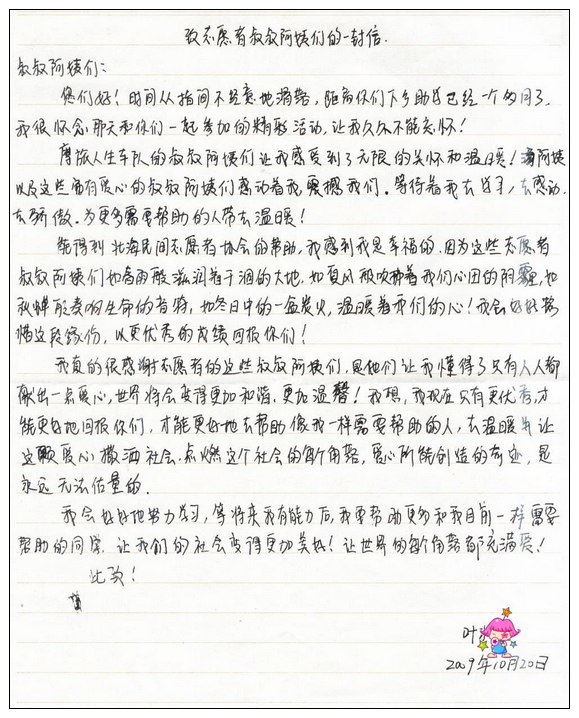 致志愿者叔叔阿姨们的一封信.
叔叔阿姨们:
您们好! 时间从指间不经意地滑落, 距离你们下乡助学已经一个多月了,
我很怀念那天和你们一起参加的精彩活动, 让我久久不能忘怀!
摩旅人生车队的叔叔阿姨们让我感受到了无限的关怀和温暖! 海阿姨
以及这些富有爱心的叔叔阿姨们感动着我, 震撼我们. 等待着我去学习, 去感动.
去骄傲. 为更多需要帮助的人带去温暖!
能得到北海民间志愿者协会的帮助, 我感到我是幸福的. 因为这些志愿者
叔叔阿姨们如春雨般滋润着干涸的大地. 如夏风般吹拂着我们心田的阴霾, 如
秋蝉般奏响生命的音符, 如冬日中的一盆炭火, 温暖着我们的心! 我会好好珍
惜这段缘份, 以更优秀的成绩回报你们!
我真的很感谢志愿者的这些叔叔阿姨们, 是他们让我懂得了只有人人都
献出一点爱心, 世界将会变得更加和谐. 更加温馨! 我想, 我现在只有更优秀, 才
能更好地回报你们, 才能更好地去帮助像我一样需要帮助的人, 去温暖 让
这颗爱心撒洒社会. 点燃这个社会的每个角落, 爱心所能创造的奇迹, 是
永远无法估量的.
我会好好地努力学习, 等将来我有能力后, 我要帮助更多和我目前一样需要
帮助的同学. 让我们的社会变得更加美好! 让世界的每个角落都充满爱!
此致!
叶
2009年10月20日